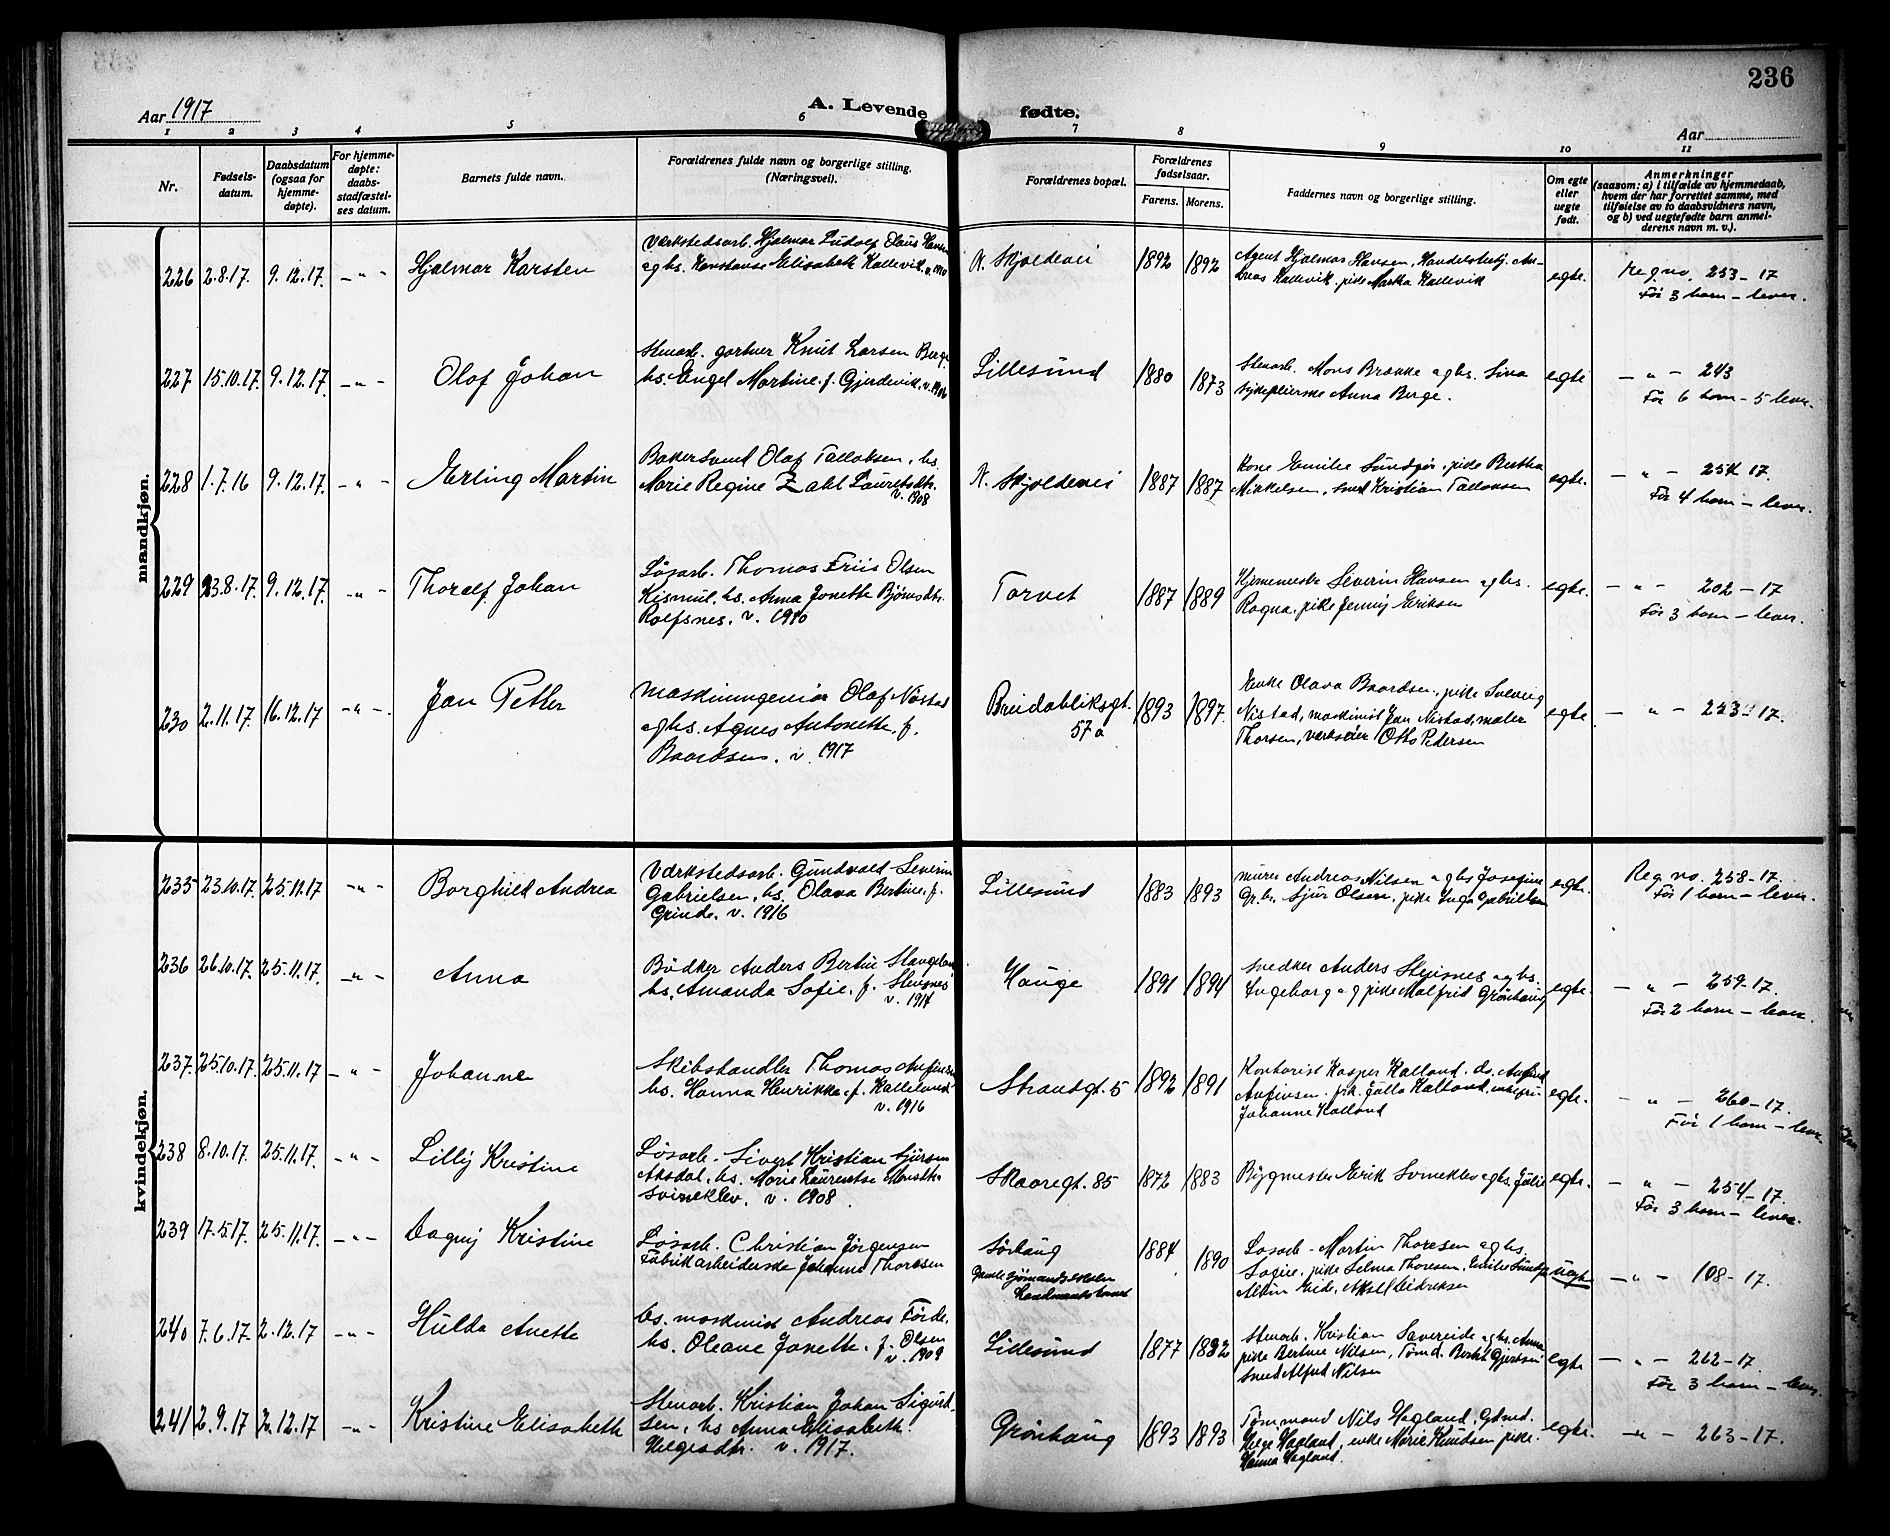 236
Aar 1917
A. Levende fødte.
Aar
1 2 3 4 5 6 7 8 9 10 11
Nr.
Fødsels-
datum.
Daabsdatum
(ogsaa for
hjemme-
døpte).
For hjemme-
døpte:
daabs-
stadfæstel-
ses datum.
Barnets fulde navn.
Forældrenes fulde navn og borgerlige stilling.
(Næringsvei).
Forældrenes bopæl.
Forældrenes
fødselsaar.
Farens. Morens.
Faddernes navn og borgerlige stilling.
Om egte
eller
uegte
født.
Anmerkninger
(saasom: a) i tilfælde av hjemmedaab,
hvem der har forrettet samme, med
tilføielse av to daabsvidners navn,
og b) ved uegtefødte barn anmel-
derens navn m. v.).
mandkjøn.
226 2.8.17. 9.12.17. - " -
Hjalmar Karsten
Værkstedsarb. Hjalmar Ludolf Olaus Hansen
og hs. Konstanse Elisabeth Kallevik
N. Skjoldavei
1892 1892
Agent Hjalmar Hansen, Handelsbetj. An-
dreas Kallevik, pike Martha Kallevik
egte.
Reg no. 253-17
Før 3 barn - lever.
227 15.10.17. 9.12.17. - " -
Olaf Johan
Stenarb. gartner Knut Larsen Berge
hs. Engel Martine f. Gjerdevik. v. 1906
Lillesund
1880 1873
Stenarb. Mons Brække og hs. Sina
sykepleierske Anna Berge.
egte
- " - 243
Før 6 barn - 5 lever.
228 1.7.16 9.12.17. - " -
Erling Martin
Bakersvend Olaf Tallaksen, hs.
Marie Regine Zahl Lauritsdtr.
v. 1908
N. Skjoldavei
1887 1887
Kone Emilie Sundfør, pike Bertha
Mikkelsen, sned. Kristian Tallaksen
egte.
- " - 254 17.
Før 4 barn - lever.
229 23.8.17. 9.12.17. - " -
Thoralf Johan
Løsarb. Thomas Friis Olsen
Kismul, hs. Anna Jonette Bjørnsdtr.
Rolfsnes. v. 1910
Torvet
1887 1889
Severin Hansen og hs.
Ragna, pike Jenny Eriksen
egte.
- " - 202-17
Før 3 barn - lever.
230 2.11.17. 16.12.17 - " -
Jan Petter
Maskiningeniør Olaf Nistad
og hs. Agnes Antonette, f.
Baardsen. v. 1917
Breidabliksgt.
57 a
1893 1897.
Enke Olava Baardsen, pike Solveig
Nistad, maskinist Jan Nistad, maler
Thorsen, verkseier Otto Pedersen
egte
- " - 223-17.
kvindekjøn.
235 23.10.17. 25.11.17 - " -
Borghild Andrea
Værkstedsarb. Gundvald Severin
Gabrielsen, hs. Olava Bertine, f.
Grinde. v. 1916
Lillesund
1883 1893
murer Andreas Nilsen og hs Josefine
Gr.br. Sjur Olsen, pike Inga Gabrielsen
egte.
Reg no. 258-17.
Før 1 barn - lever.
236 26.10.17. 25.11.17. - " -
Anna
Bødker Anders Bertin Stangeland
hs. Amanda Sofie, f. Stensnes
v. 1914
Hauge
1891 1894
snedker Anders Stensnes og hs.
Ingeborg og pike Malfrid Grønhaug
egte.
- " - 259-17.
Før 2 barn - lever.
237. 25.10.17. 25.11.17 - " -
Johanne
Skibshandler Thomas Anfinsen
hs. Hanna Henrikke, f. Kallelund.
v. 1916
Strandgt. 5
1892 1891
Kontorist Kasper Kalland. do. Anfind
Anfinsen, pik. Julla Kalland,
Johanne Kalland
egte.
- " - 260-17.
Før 1 barn - lever
238 8.10.17. 25.11.17. - " -
Lilly Kristine
Løsarb. Sivert Kristian Sjursen
Aksdal, hs. Marie Laurentse
Svineklev. v. 1908.
Skaaregt. 85
1872 1883
Bygmester Erik Svineklev og hs. Julie
egte.
- " - 254-17.
Før 3 barn - lever.
239 17.5.17. 25.11.17. - " -
Dagny Kristine
Løsarb. Christian Jørgensen
Fabrikarbeiderske Johanne Thoresen
Sørhaug
1884 1890
Løsarb. Martin Thoresen og hs.
Sofie, pike Selma Thoresen, Emilie Sundfør
Alvin Eide, Aksel Didriksen
uegte
- " - 108-17.
240 7.6.17. 2.12.17 - " -
Hulda Anette
bs. maskinist Andreas Førde.
hs. Oleane Jonette. f. Olsen
v. 1909
Lillesund
1877 1882
Stenarb. Kristian Savereide og hs. Anna
pike Bertine Nilsen, Tømd. Berthel Gjertsen
sned Alfred Nilsen
egte
- " - 262-17
Før 3 barn - lever.
241 2.9.17 2.12.17 - " -
Kristine Elisabeth
Stenarb. Kristian Johan Sigurd-
sen, hs Anna Elisabeth
Helgesdtr. v. 1917.
Grønhaug
1893 1893
Tømmand Nils Hagland, Gdmd.
Helge Hagland, enke Marie Knudsen, pike.
Hanna Hagland.
egte.
- " - 263-17.